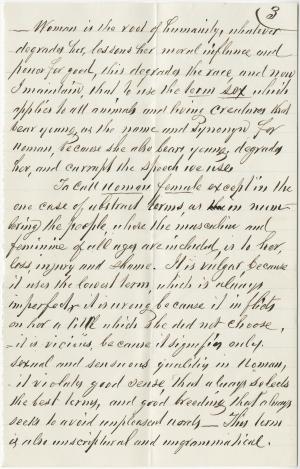 3
– Woman is the root of humanity, whatever
degrades her, lessens her moral influence and
power for good, this degrades the race, and now
I maintain, that to use the term sex which
applies to all animals and living creatures that
bear young, as the name and Synonym for
Woman, because she also bears young, degrades
her, and corrupts the speech we use.
To call Woman female except in the
one case of abstract terms, as in num-
bering the people, where the masculine and
feminine of all ages are included, is to her,
loss injury and shame. It is vulgar because
it uses the lowest term, which is always
imperfect, it is wrong because it inflicts
on her a title which she did not choose,
– it is vicious, because it signifies only
sexual and sensuous quality in Woman,
– it violates good sense that always selects
the best terms, and good breeding that always
seeks to avoid unpleasant words – This term
is also unscriptural and ungrammatical.